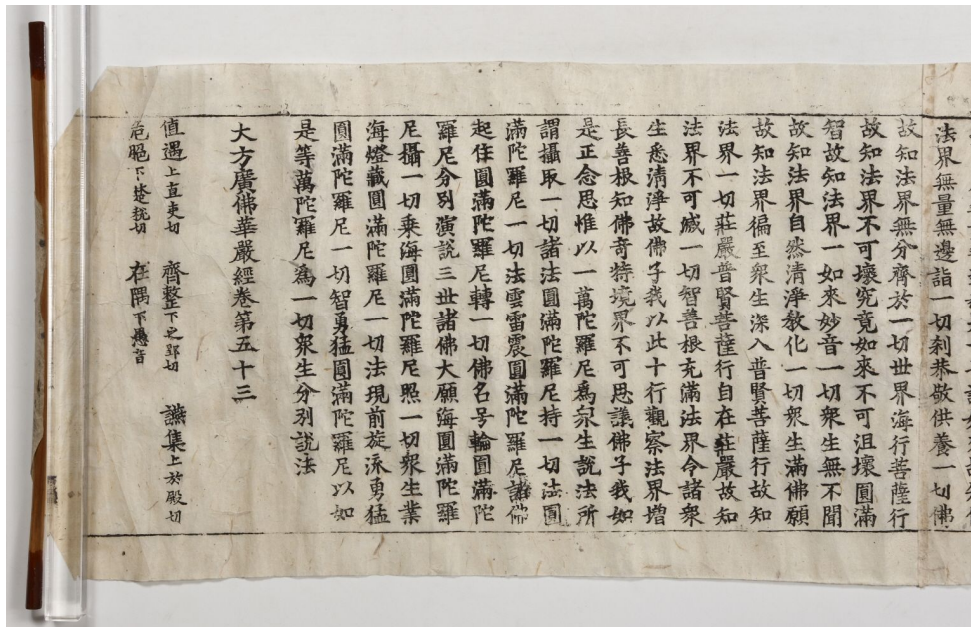 法界無量無邊詣一切刹恭敬供養一切佛
故知法界無分齊於一切世界海行菩薩行
故知法界不可壞究竟如來不可沮壞圓滿
智故知法界一如來妙音一切衆生無不聞
故知法界自然清淨教化一切衆生滿佛願
故知法界徧至衆生深入普賢菩薩行故知
法界一切莊嚴普賢菩薩行自在莊嚴故知
法界不可滅一切智善根充滿法界令諸衆
生悉清淨故佛子我以此十行觀察法界增
長善根知佛奇特境界不可思議佛子我如
是正念思惟以一萬陀羅尼爲衆生說法所
謂攝取一切諸法圓滿陀羅尼持一切法圓
滿陀羅尼一切法雲雷震圓滿陀羅尼諸佛
起住圓滿陀羅尼轉一切佛名号輪圓滿陀
羅尼分別演說三世諸佛大願海圓滿陀羅
尼攝一切乘海圓滿陀羅尼照一切衆生業
海燈藏圓滿陀羅尼一切法現前旋流勇猛
圓滿陀羅尼一切智勇猛圓滿陀羅尼以如
是等萬陀羅尼為一切衆生分別說法
大方廣佛華嚴經卷第五十三
值遇上直吏切 齊整下之郢切 讌集上於殿切
危脆下楚稅切 在隅下愚音